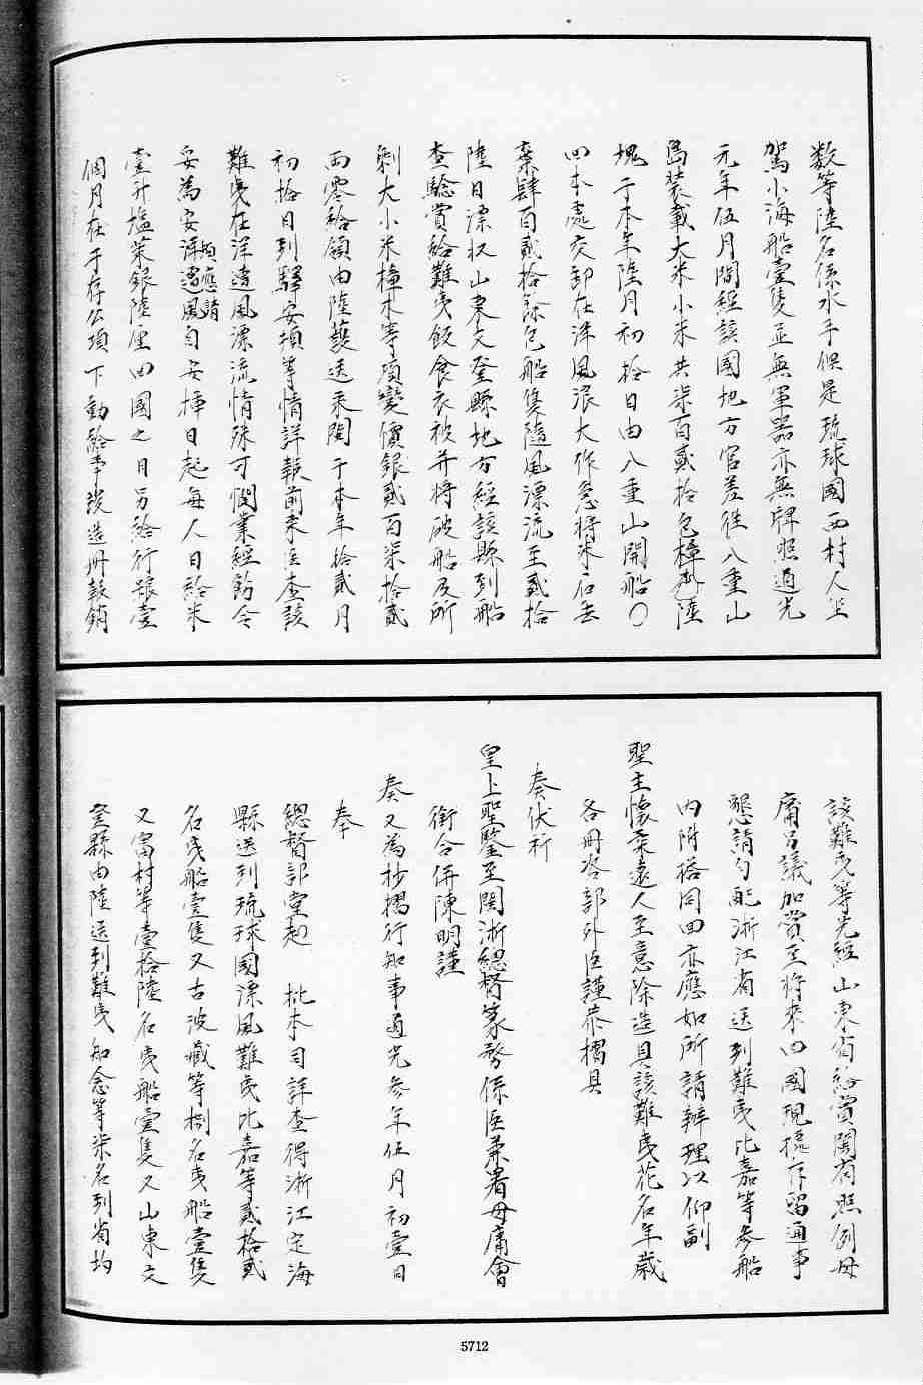 数等陸名係水手俱是琉球國西村人坐
駕小海船壹隻並無軍器亦無牌照道光
元年伍月間經該國地方官差往八重山
島装載大米小米共柒百貳拾包樟木陸
塊于本年陸月初拾日由八重山開船〇
回本處交卸在洋風浪大作急將米石丢
棄肆百貳拾餘包船隻隨風漂流至貳拾
陸日漂収山東文登縣地方經該縣到船
查驗賞給難夷飯食衣被并將破船及所
剩大小米樟木等項變價銀貳百柒拾貳
両零給領由陸護送来閩于本年拾貳月
初拾日到驛安頓等情詳報前来臣查該
難夷在洋遭風漂流情殊可憫業經飭令
妥為安 自安揷日起每人日給米
壹升塩菜銀陸厘回國之日另給行粮壹
個月在于存公項下動給事竣造册報銷
該難夷等先經山東省給賞閩省照例毋
庸另議加賞至將来回國現據存留通事
懇請勻配浙江省送到難夷比嘉等参船
内附搭同回亦應如所請辦理以仰副
聖主懐柔遠人至意除造具該難夷花名年歳
各册咨部外臣謹恭摺具
奏伏祈
皇上聖鑒至閩浙總督篆務係臣兼署毋庸會
銜合併陳明謹
奏又為抄摺行知事道光参年伍月初壹日
奉
總督部堂趙 批本司詳查得浙江定海
縣送到琉球國漂風難夷比嘉等貳拾貳
名夷船壹隻又古波藏等捌名夷船壹隻
又富村等壹拾陸名夷船壹隻又山東文
登縣由陸送到難夷知念等柒名到省均
5712